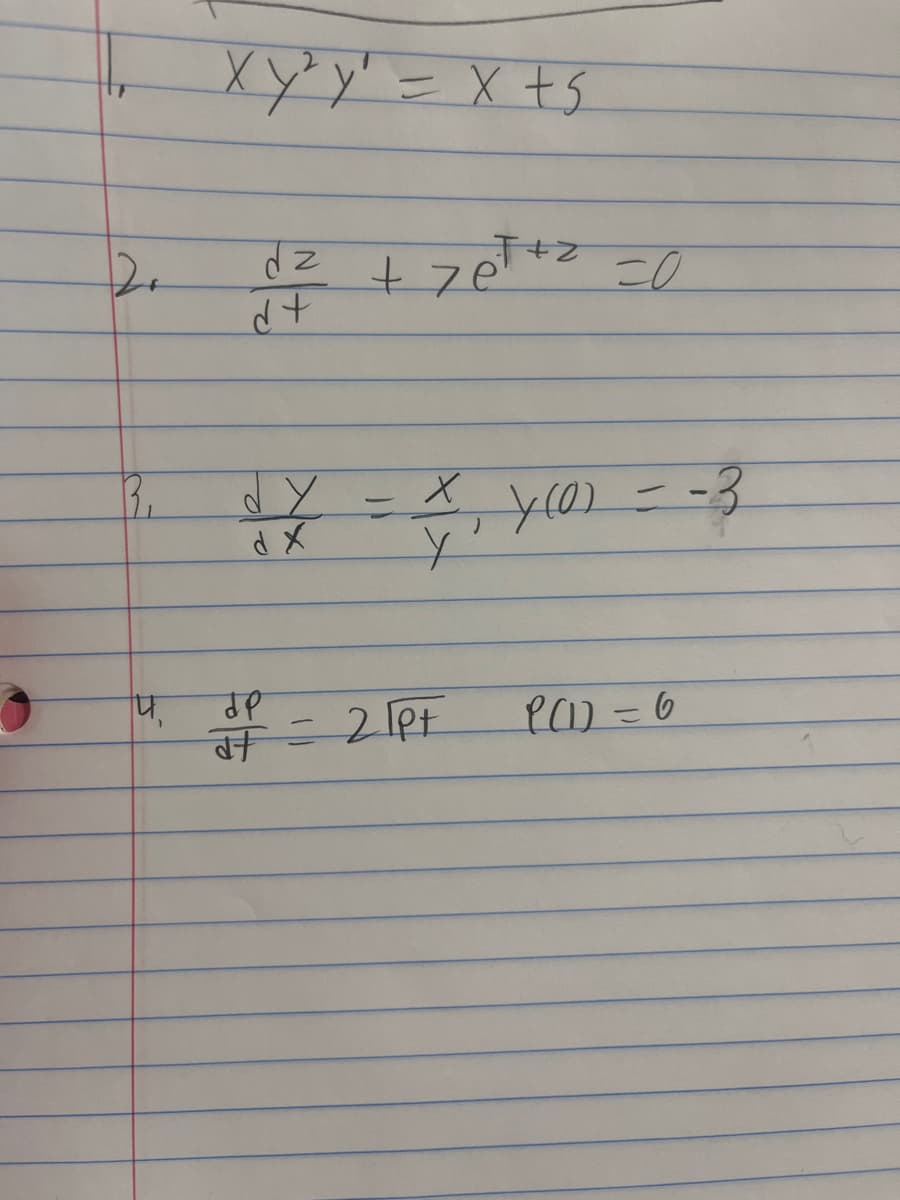 1. xy²y' = x + 5
2. dz/dt + 7e^(T+z) = 0
3. dy/dx = x/y, y(0) = -3
4. dP/dt = 2√Pt P(1) = 6